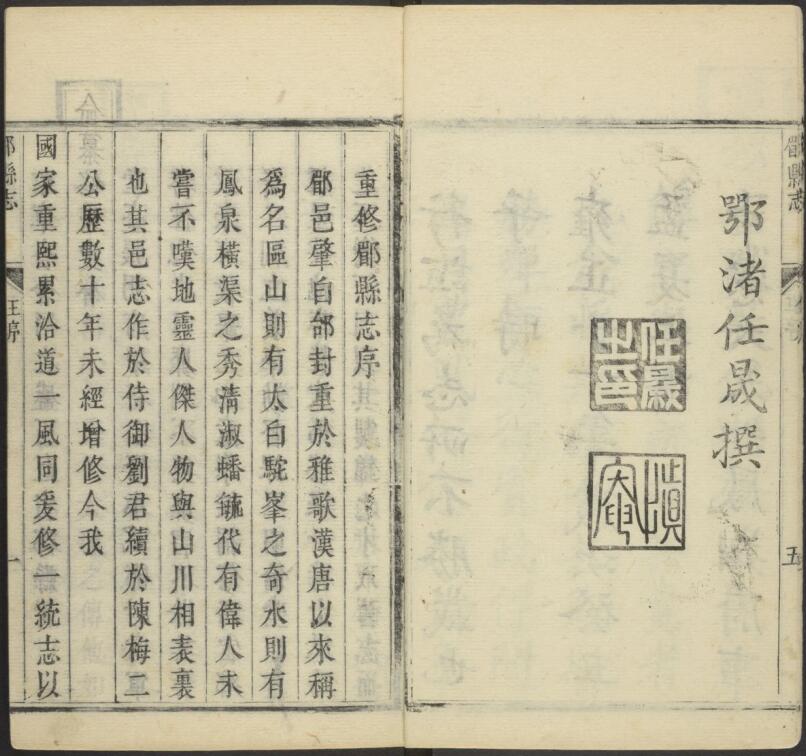 郿縣志
五
鄂渚任晟撰
任晟之印
重修郿縣志序
郿邑肇自邰封重於雅歌漢唐以來稱
爲名區山則有太白駝峯之奇水則有
鳳泉橫渠之秀淸淑蟠毓代有偉人未
嘗不嘆地靈人傑人物與山川相表裏
也其邑志作於侍御劉君續於陳梅二
公歷數十年未經增修今我
國家重熙累洽道一風同爰修一統志以
郿縣志
王序
一